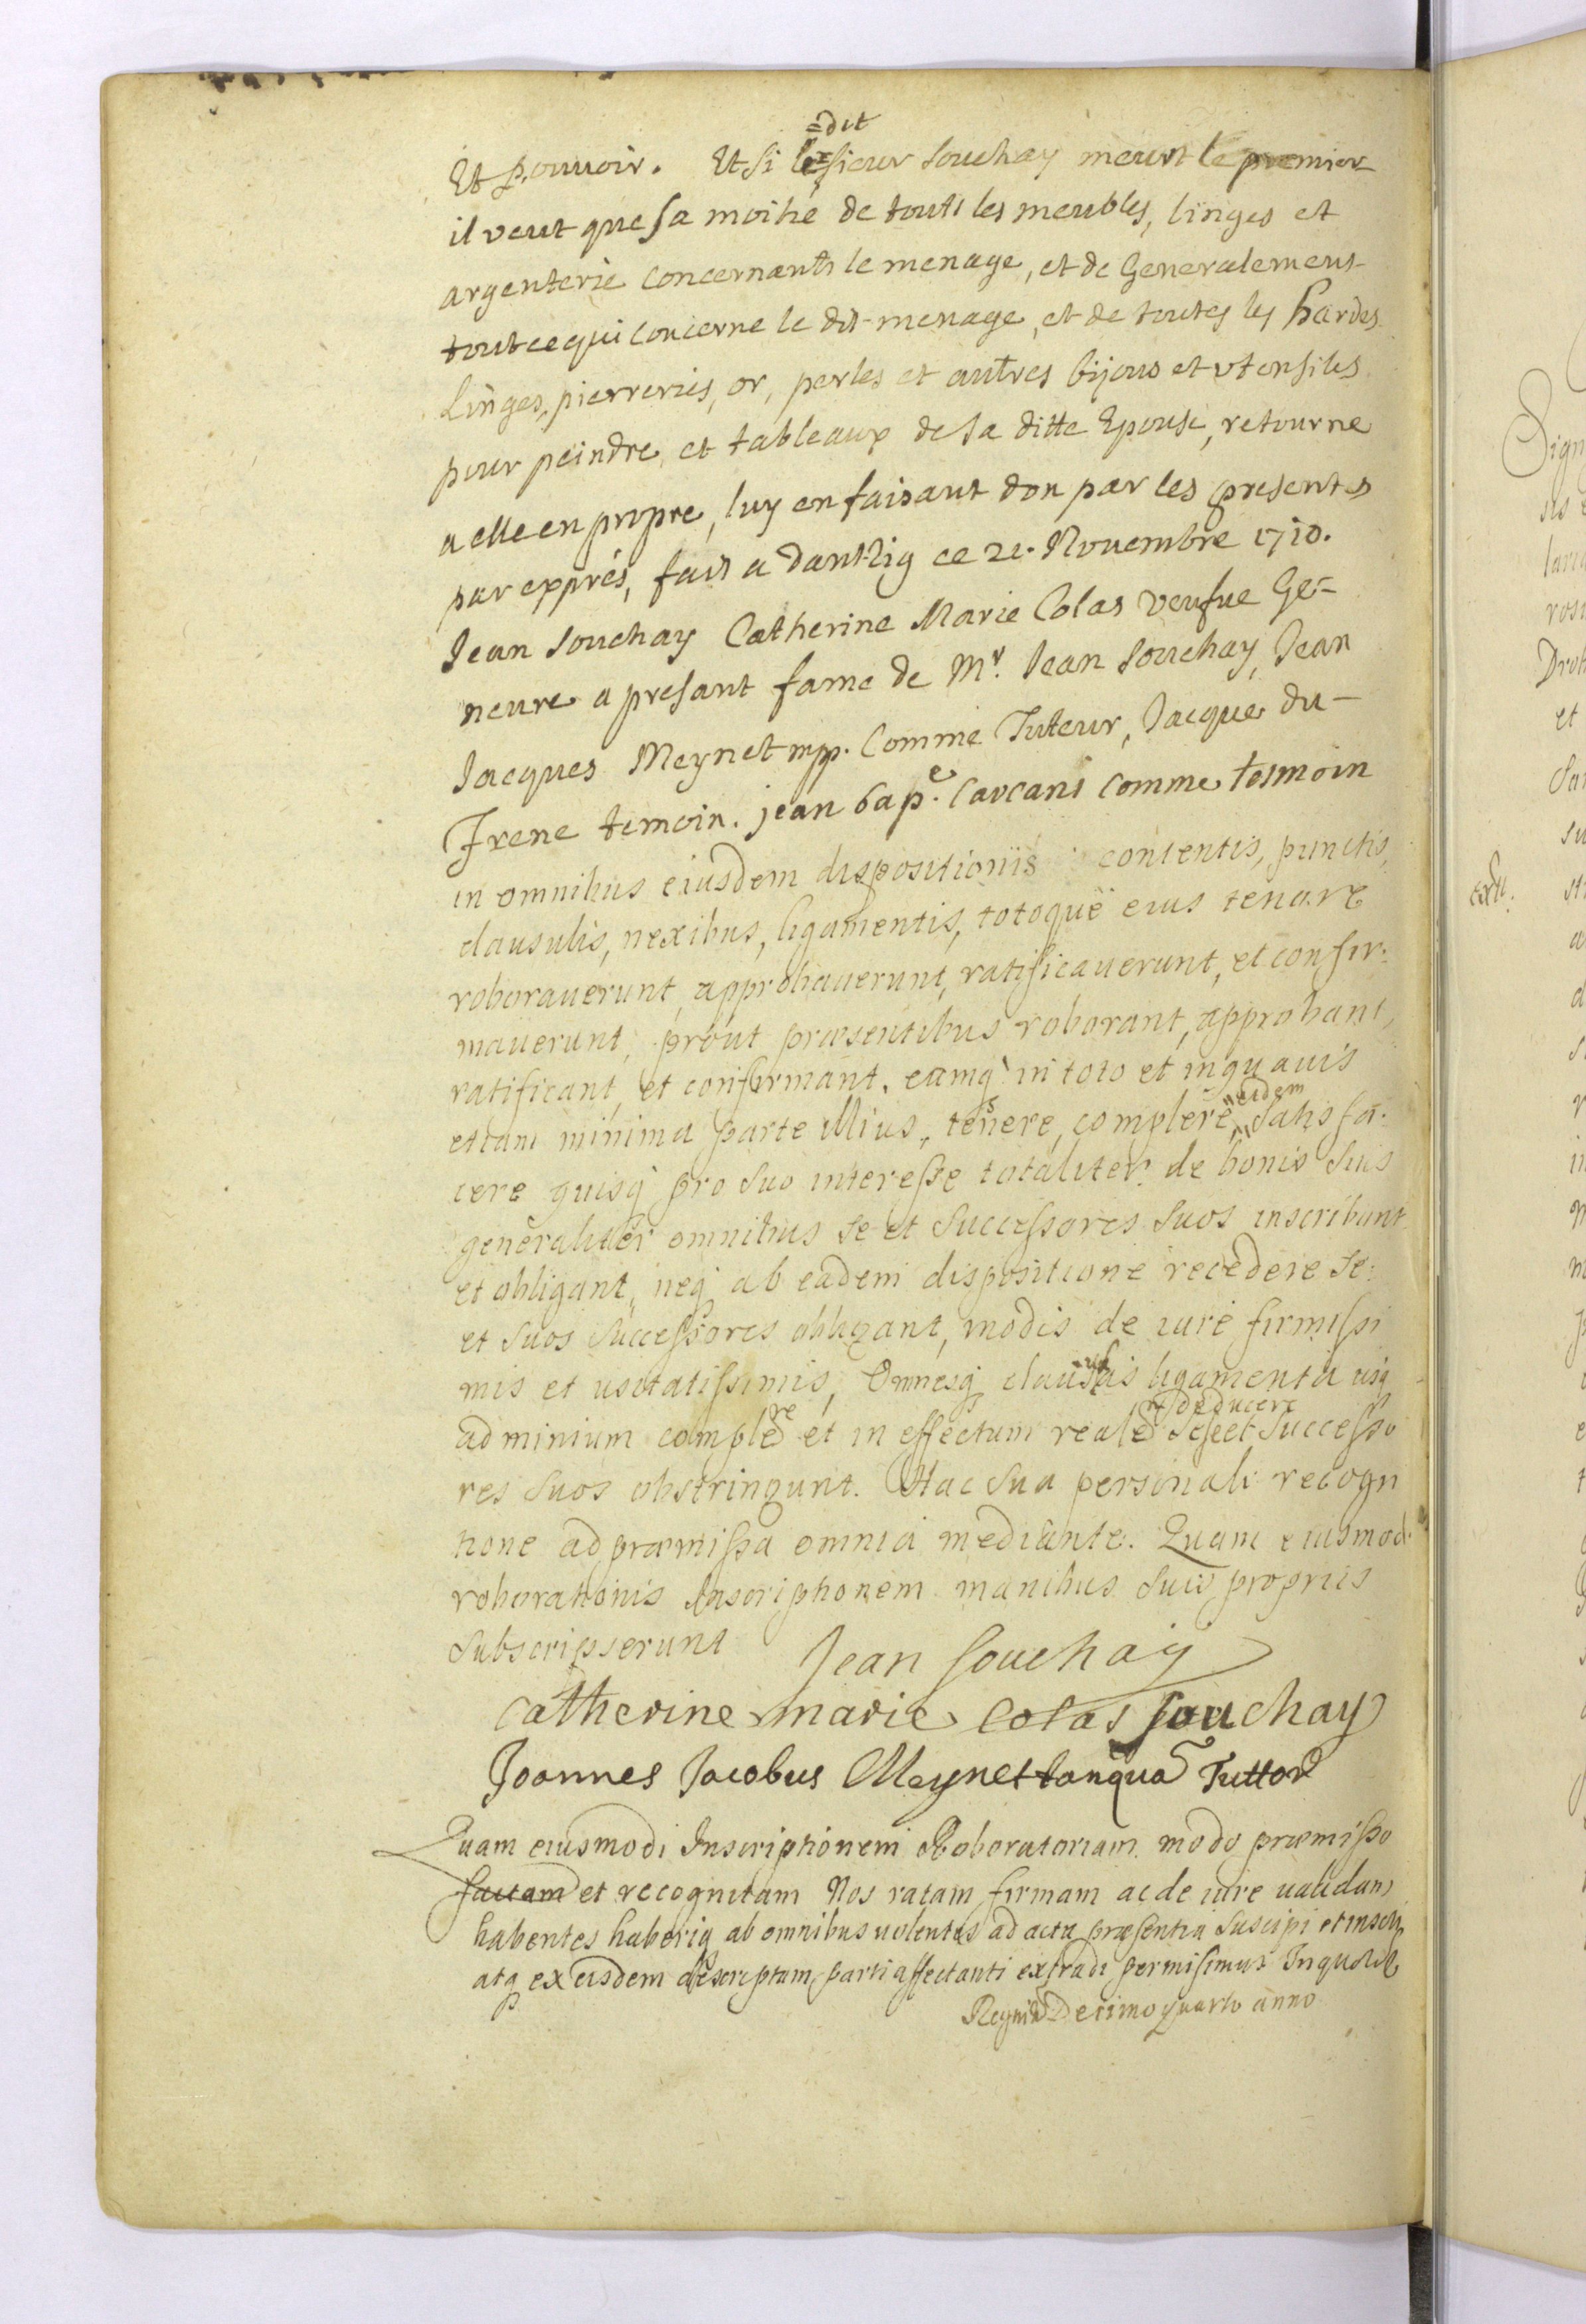 Et pouuoir. Et si le=dit sieur Souchay meurt le premier
il veut que sa moitié de touts les meubles, linges et
argenterie concernants le menage, et de Generalement
tout ce qui concerne le dit menage, et de toutes les hardes
Linges, pierreries, or, perles et autres bijous et vtensiles
pour peindre, et tableaux de sa ditte Epouse, retourne
a elle en propre, luy en faisant don par les presentes
par exprés, fait a Dantzig ce 21. Nouembre 1710.
Jean Souchay Catherine Marie Colas veufue Ge=
neure a presant fame de Mr. Jean Souchay, Jean
Jacques Meynet mpp. Comme Tuteur, Jacque du-
Frene temoin. jean bape. Carcani comme tesmoin
in omnibus eiusdem dispositioniis contentis, punctis,
clausulis, nexibus, ligamentis, totoque eius tenore
roborauerunt, approbauerunt, ratificauerunt, et confir:
mauerunt, prout præsentibus roborant, approbant,
ratificant et confirmant, eamq in toto et in quauis
etiam minima parte illius, tenere, complere, eidem satisfa:
cere quisq pro suo interesse totaliter de bonis suis
generaliter omnibus se et Successores suos inscribunt
et obligant, neq ab eadem dispositione recedere se:
et suos Successores obligant, modis de iure firmissi
mis et usitatissimis, Omnesq clausulas ligamenta usq
ad minium complere et in effectum reale deducere sese et Successo
res suos obstringunt. Hac sua personali recogn
tione ad præmissa omnia mediante. Quam eiusmodi
roborationis Inscriptionem manibus suis propriis
subscripserunt Jean Souchay
catherine marie colas souchay
Joannes Jacobus Meynet tanqua Tuttor
Quam eiusmodi Inscriptionem Roboratoriam modo præmisso
factam et recognitam Nos ratam, firmam ac de iure ualidam
habentes haberiq ab omnibus uolentes ad acta præsentia suscipi et inscribi
atq ex eisdem descriptum parti affectanti extradi permisimus In quorum
Regni Decimo quarto anno
extr.